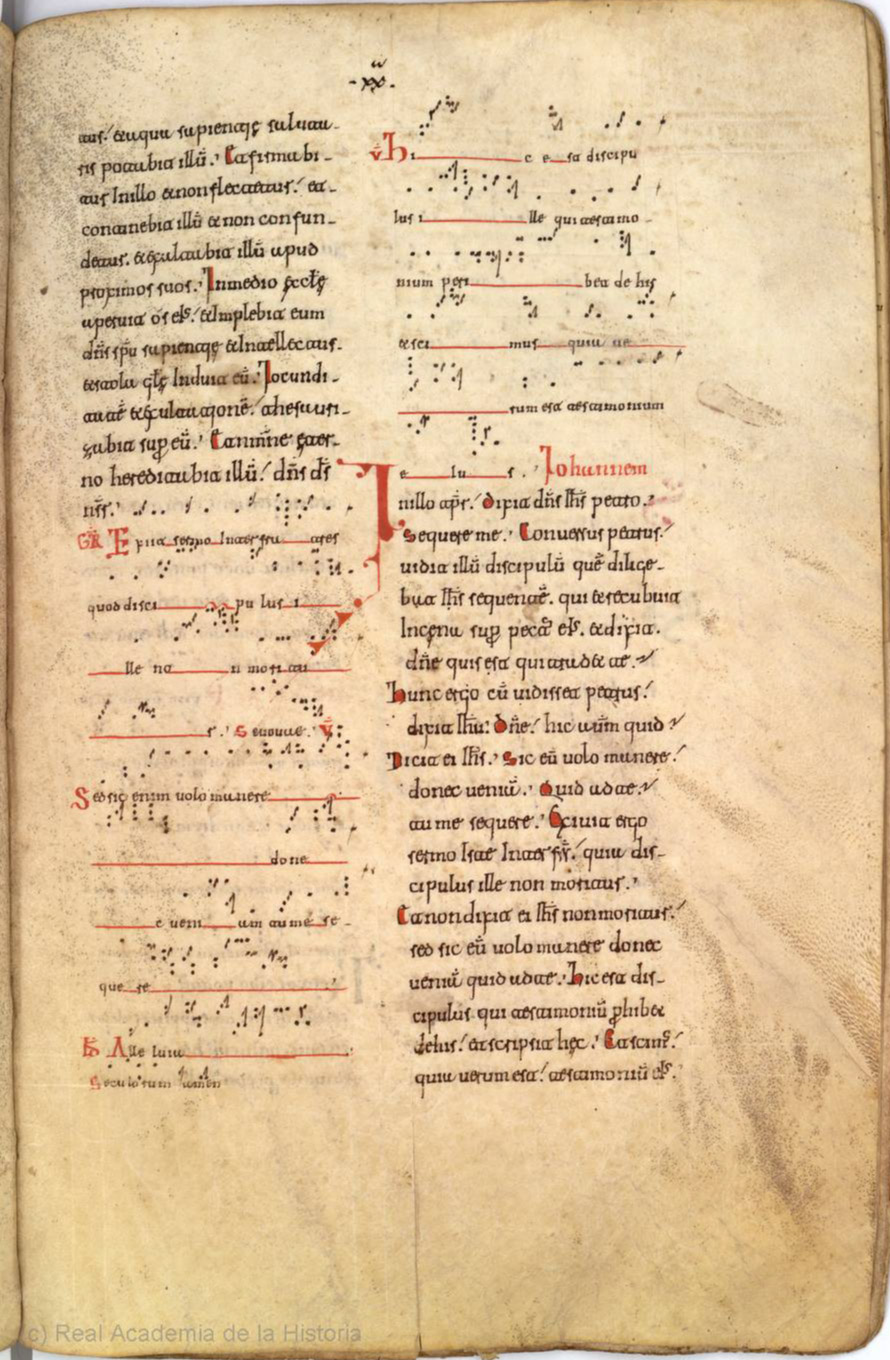 -xx.
tus. & aqua sapientię saluta-
ris potabit illū. Et firmabi-
tur In illo & non flectetur. et
continebit illū & non confun-
detur. & exaltabit illū apud
proximos suos. In medio ęcclę
aperuit os eis. & Implebit eum
dn̄s spū sapientię & Intellectus.
& stola glę Induit eū. Iocundi-
tatē & exultationē. thesauri-
zabit sup eū. Et nomine ęter-
no hereditabit illū. dn̄s ds̄
nr̄.
GR Exiit sermo Inter fra tres
quod disci pu lus i
lle no n mori tu
r. Seuouae. V
Sed sic enim uolo manere
done
c ueni am tu me se-
que re
Alle luia
Seculorum amen
V Hi c e st a discipu
lus i lle qui testimo-
nium peri bet de his
et sci mus quia ue
rum est testimonium
e iu s. Iohannem
In illo tp̄r. dixit dn̄s Ih̄s petro.
Sequere me. Conuersus petrus.
uidit illū discipulū quē dilige-
bat Ih̄s sequentē. qui & recubuit
In cena sup pect eis. & dixit.
dn̄e quis est qui trad& te.
Hunc ergo cū uidisset petrus.
dixit Ih̄u: Dn̄e. hic autm̄ quid
Dicit ei Ih̄s. Sic eū uolo manere.
donec ueniā. Quid ad te.
tu me sequere. Exiuit ergo
sermo Iste Inter fr̄s. quia dis-
cipulus ille non moritur.
Et non dixit ei Ih̄s non moritur.
sed sic eū uolo manere donec
ueniā quid ad te. Hic est dis-
cipulus qui testimoniū phibet
de his. & scripsit hęc. Et scim̄.
quia uerum est. testimoniū eis.
(c) Real Academia de la Historia